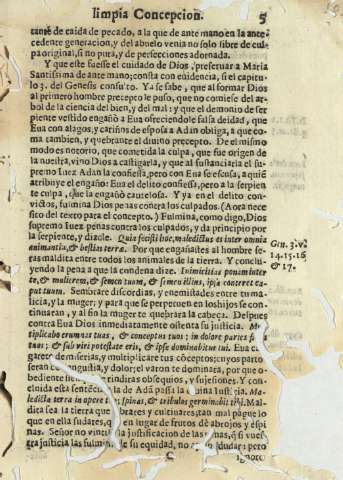 limpia Concepcion. 5
tante de caida de pecado, a la que de ante mano en la ante-
cedente generacion, y del abuelo venia no solo libre de cul-
pa original, si no pura, y de perfecciones adornada.
Y que este fuesse el cuidado de Dios, preseruar a Maria
Santissima de ante mano; consta con euidencia, si el capitu-
lo 3. del Genesis consulto. Ya se sabe, que al formar Dios
al primero hombre precepto le puso, que no comiesse del ar-
bol de la ciencia del bien, y del mal: y que el demonio de ser
piente vestido engañò a Eua ofreciendole falsa deidad, que
Eua con alagos, y cariños de esposa a Adan obliga, a que co-
ma tambien, y quebrante el diuino precepto. De el mismo
modo es notorio, que cometida la culpa, que fue origen de
la nuestra, vino Dios a castigarla, y que al sustanciarla el su-
premo Iuez Adan la confiessa, pero con Eua se escusa, a quiē
atribuye el engaño: Eua el delito confiessa, pero a la serpien
te culpa, que la engañò cautelosa. Y ya en el delito con-
victos, fulmina Dios penas contra los culpados. (Aora nece
sito del texto para el concepto.) Fulmina, como digo, Dios
supremo Iuez penas contra los culpados, y da principio por
la serpiente, y dizele. Quia fecisti hoc, maledictus es inter omnia
animantia, & bestias terræ. Por que engañastes al hombre se-
ras maldita entre todos los animales de la tierra. Y concluy-
endo la pena a que la condena dize. Inimicitias ponam inter
te, & mulierem, & semen tuum, & semen illius, ipsa conteret ca-
put tuum. Sembrare discordias, y enemistades entre tu ma-
licia, y la muger; y para que se perpetuen en los hijos se con-
tinuaran, y al fin la muger te quebrarà la cabeça. Despues
contra Eua Dios inmediatamente ostenta su justicia. Mul
tiplicabo erumnas tuas, & conceptus tuos; in dolore paries f
tuos; & sub viri potestate eris, & ipse dominabitur tui. Eua
garè de miserias, y multiplicare tus cōceptos; cuyos parto
seran con angustia, y dolor; el varon te dominarà, por que o-
bediente rendiras obsequios, y sujesiones. Y con-
cluida esta sentēcia la de Adā passa la diuina Iusticia. Ma-
ledicta terra in opere tuo; spinas, & tribulos germinabit tibi. Mal-
dita sea la tierra que labrares y cultiuares; tan mal pague lo
que en ella sudares, que en lugar de frutos dè abrojos y espi
nas. Señor no la justificacion de las penas, q̄ si vues
tra justicia las fulmina su equidad, no ay dudar: pero
C ignoro
Gen. 3. v.
14. 15. 16
& 17.